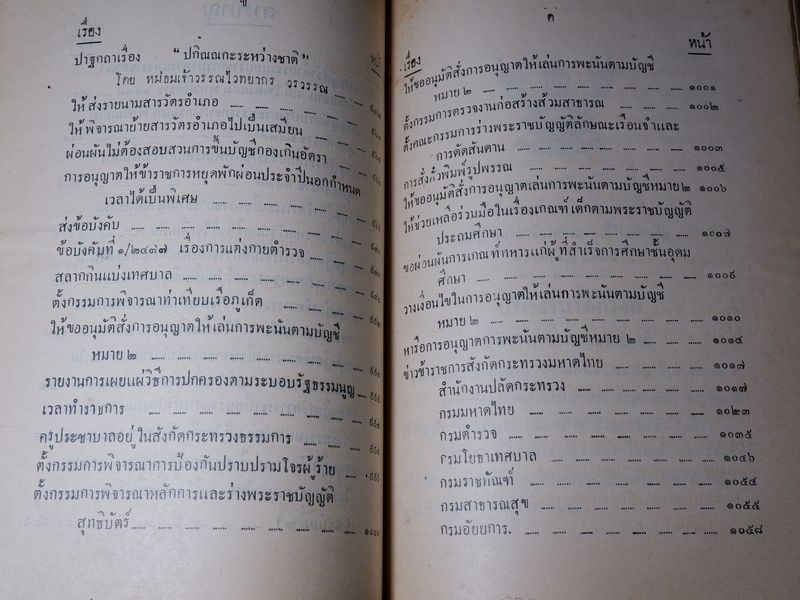 ข
เรื่อง
หน้า
ปาฐกถาเรื่อง "ปกิณณกะระหว่างชาติ"
โดย หม่อมเจ้าวรรณไวทยากร วรวรรณ
ให้ส่งรายนามสารวัตรอำเภอ
ให้พิจารณาย้ายสารวัตรอำเภอไปเป็นเสมียน
ผ่อนผันไม่ต้องสอบสวนการขึ้นบัญชีกองเกินอัตรา
การอนุญาตให้ข้าราชการหยุดพักผ่อนประจำปีนอกกำหนด
เวลาได้เป็นพิเศษ
ส่งข้อบังคับ
ข้อบังคับที่ ๑/๒๔๗๗ เรื่องการแต่งกายตำรวจ
สลากกินแบ่งเทศบาล
ตั้งกรรมการพิจารณาท่าเทียบเรือภูเก็ต
ให้ขออนุมัติสั่งการอนุญาตให้เล่นการพะนันตามบัญชี
หมาย ๒
รายงานการเผยแผ่วิธีการปกครองตามระบอบรัฐธรรมนูญ
เวลาทำราชการ
ครูประชาบาลอยู่ในสังกัดกระทรวงธรรมการ
ตั้งกรรมการพิจารณาการป้องกันปราบปรามโจรผู้ร้าย
ตั้งกรรมการพิจารณาหลักการและร่างพระราชบัญญัติ
สุทธิบัตร์ ๑๐๐๐
ค
เรื่อง
หน้า
ให้ขออนุมัติสั่งการอนุญาตให้เล่นการพะนันตามบัญชี
หมาย ๒ ๑๐๐๑
ตั้งกรรมการตรวจงานก่อสร้างส้วมสาธารณ ๑๐๐๒
ตั้งคณะกรรมการร่างพระราชบัญญัติลักษณะเรือนจำและ
การดัดสันดาน ๑๐๐๓
การสั่งจั๊วพิมพ์รูปพรรณ ๑๐๐๕
ให้ขออนุมัติสั่งการอนุญาตเล่นการพะนันตามบัญชีหมาย ๒ ๑๐๐๖
ให้ช่วยเหลือร่วมมือในเรื่องเกณฑ์เด็กตามพระราชบัญญัติ
ประถมศึกษา ๑๐๐๗
ขอผ่อนผันการเกณฑ์ทหารแก่ผู้ที่สำเร็จการศึกษาชั้นอุดม
ศึกษา ๑๐๐๙
วางเงื่อนไขในการอนุญาตให้เล่นการพะนันตามบัญชี
หมาย ๒ ๑๐๑๐
หารือการอนุญาตการพะนันตามบัญชีหมาย ๒ ๑๐๑๔
ข่าวข้าราชการสังกัดกระทรวงมหาดไทย ๑๐๑๗
สำนักงานปลัดกระทรวง ๑๐๑๗
กรมมหาดไทย ๑๐๒๓
กรมตำรวจ ๑๐๓๕
กรมโยธาเทศบาล ๑๐๔๖
กรมราชทัณฑ์ ๑๐๕๔
กรมสาธารณสุข ๑๐๕๕
กรมอัยยการ. ๑๐๕๘